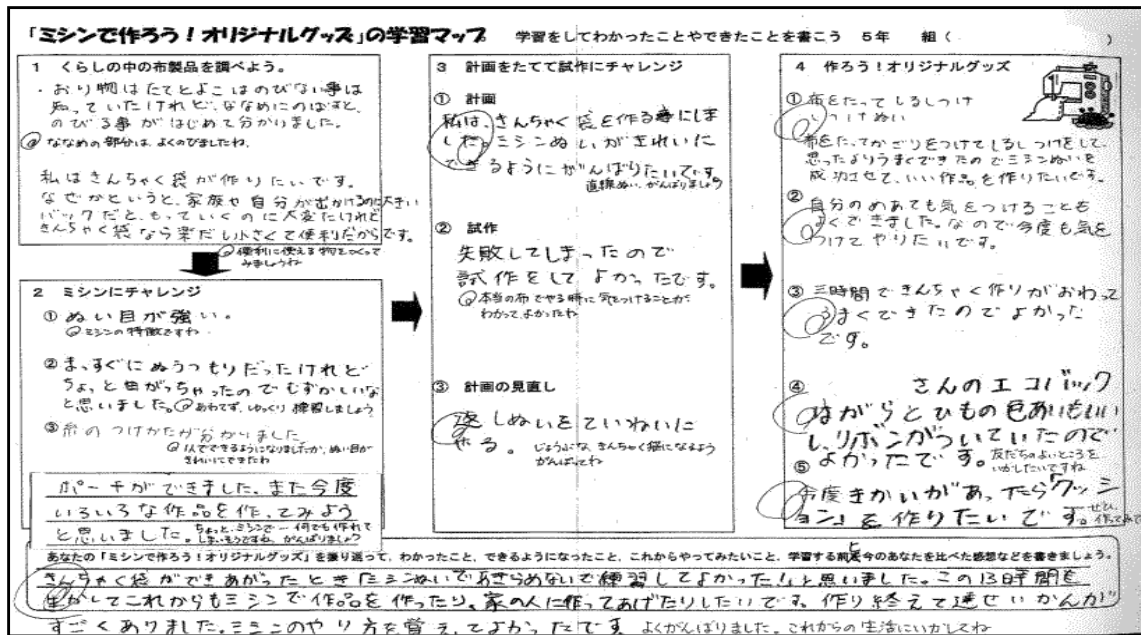 「ミシンで作ろう！オリジナルグッズ」の学習マップ 学習をしてわかったことやできたことを書こう 5年 組（ ）
1 くらしの中の布製品を調べよう。
・おり物はたてとよこはのびない事は
知っていたけれど、ななめにのばすと、
のびる事がはじめて分かりました。
ななめの部分は、よくのびましたね。
私はきんちゃく袋が作りたいです。
なぜかというと、家族や自分が出かけるのに大きい
バックだと、もっていくのに大変だけれど
きんちゃく袋なら楽だし小さくて便利だからです。
便利に使える物をつくって
みましょうね
2 ミシンにチャレンジ
① ぬい目が強い。
ミシンの特徴ですね
② まっすぐにぬうつもりだったけれど
ちょっと曲がっちゃったのでむずかしいな
と思いました。あわてず、ゆっくり練習しましょう
③ 糸のつけかたが分かりました
1人でできるようになりましたか。ぬい目が
きれいにできたわ
ポーチができました。また今度
いろいろな作品を作ってみよう
と思いました。ちょっと、ミシンで一何でも作れて
しまいそうですね。がんばりましょう
3 計画をたてて試作にチャレンジ
① 計画
私は、きんちゃく袋を作る事にしま
した。ミシンぬいがきれいに
できるようにがんばりたいです。
直線ぬい、がんばりましょう
② 試作
失敗してしまったので
試作をしてよかったです。
本当の布でやる時に気をつけることが
わかって、よかったわ
③ 計画の見直し
返しぬいをていねいに
やる。
じょうぶな、きんちゃく袋になるよう
がんばってね
4 作ろう！オリジナルグッズ
① 布をたってしるしつけ
しつけぬい
布をたってかごりをつけてしるしつけをして、
思ったよりうまくできたのでミシンぬいを
成功させて、いい作品を作りたいです。
② 自分のめあても気をつけることも
よくできました。なので今度も気を
つけてやりたいです。
③ 三時間できんちゃく作りがおわって
うまくできたのでよかった
です。
④ さんのエコバック
はがらとひもの色あいもいい
し、リボンがついていたので
よかったです。友だちのよいところを
いかしたいですね
⑤ 今度きかいがあったら「クッシ
ョン」を作りたいです。ぜひ、
作ってみて
あなたの「ミシンで作ろう！オリジナルグッズ」を振り返って、わかったこと、できるようになったこと、これからやってみたいこと、学習する前と今のあなたを比べた感想などを書きましょう。
きんちゃく袋ができあがったとき「ミシンぬいであきらめないで練習してよかった！」と思いました。この13時間を
生かしてこれからもミシンで作品を作ったり、家の人に作ってあげたりしたいです。作り終えて達せいかんが
すごくありました。ミシンのやり方を覚えてよかったです。よくがんばりました。これからの生活にいかしてね